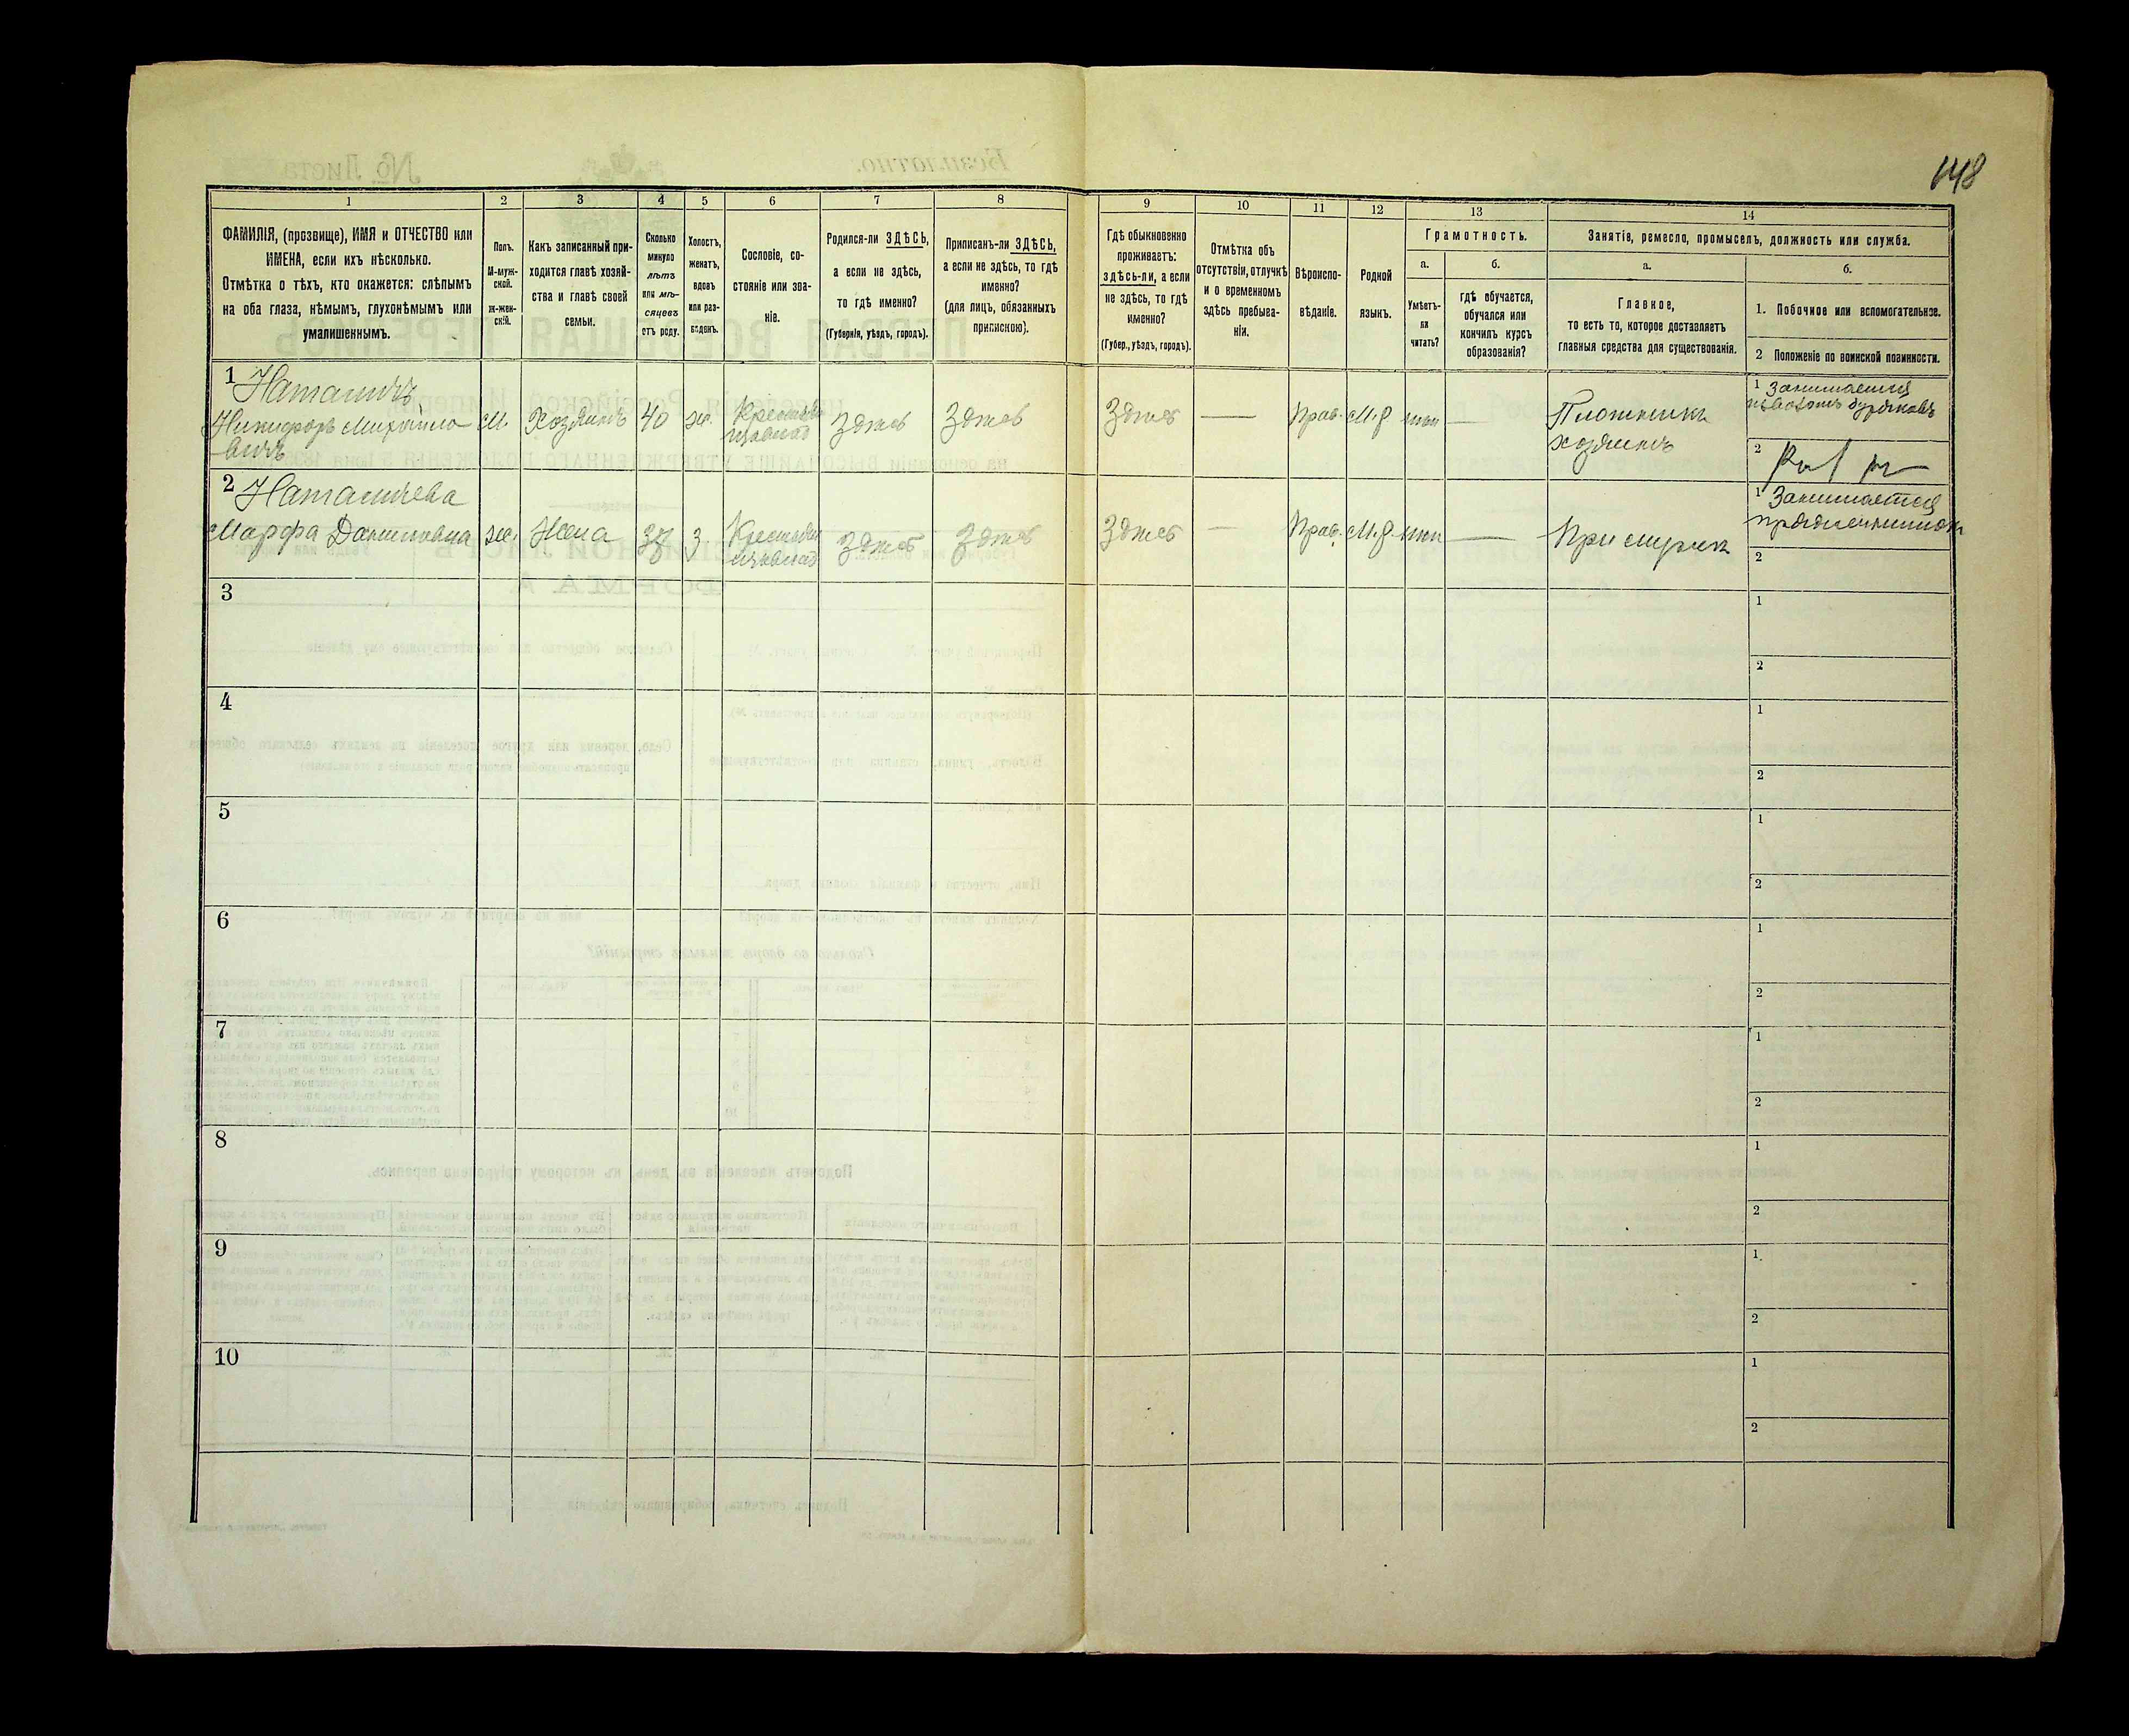 148
1
2
3
4
5
6
7
8
9
10
11
12
13
14
ФАМИЛІЯ, (прозвище), ИМЯ и ОТЧЕСТВО или
ИМЕНА, если ихъ нѣсколько.
Отмѣтка о тѣхъ, кто окажется: слѣпымъ
на оба глаза, нѣмымъ, глухонѣмымъ или
умалишеннымъ.
Полъ.
М-муж-
ской.
Ж-жен-
скій.
Какъ записанный при-
ходится главѣ хозяй-
ства и главѣ своей
семьи.
Сколько
минуло
лѣтъ
или мѣ-
сяцевъ
отъ роду.
Холостъ,
женатъ,
вдовъ
или раз-
веденъ.
Сословіе, со-
стояніе или зва-
ніе.
Родился-ли ЗДѢСЬ,
а если не здѣсь,
то гдѣ именно?
(Губернія, уѣздъ, городъ).
Приписанъ-ли ЗДѢСЬ,
а если не здѣсь, то гдѣ
именно?
(для лицъ, обязанныхъ
припискою).
Гдѣ обыкновенно
проживаетъ:
здѣсь-ли, а если
не здѣсь, то гдѣ
именно?
(Губер., уѣздъ, городъ).
Отмѣтка объ
отсутствіи, отлучкѣ
и о временномъ
здѣсь пребыва-
ніи.
Вѣроиспо-
вѣданіе.
Родной
языкъ.
Грамотность.
а.
Умѣетъ-
ли
читать?
б.
гдѣ обучается,
обучался или
кончилъ курсъ
образованія?
Занятіе, ремесло, промыселъ, должность или служба.
а.
Главное,
то есть то, которое доставляетъ
главныя средства для существованія.
б.
1. Побочное или вспомогательное.
2 Положеніе по воинской повинности.
1
Никифоръ Михайло
вичъ
М.
Хозяинъ
40
ж.
здѣсь
здѣсь
здѣсь
—
Прав.
—
Плотникъ
хозяинъ
1 Занимается
2
2
Марфа Даниловна
ж.
Жена
З.
здѣсь
здѣсь
здѣсь
—
Прав.
—
При мужѣ
1 Занимается
2
3
1
2
4
1
2
5
1
2
6
1
2
7
1
2
8
1
2
9
1.
2
10
1
2